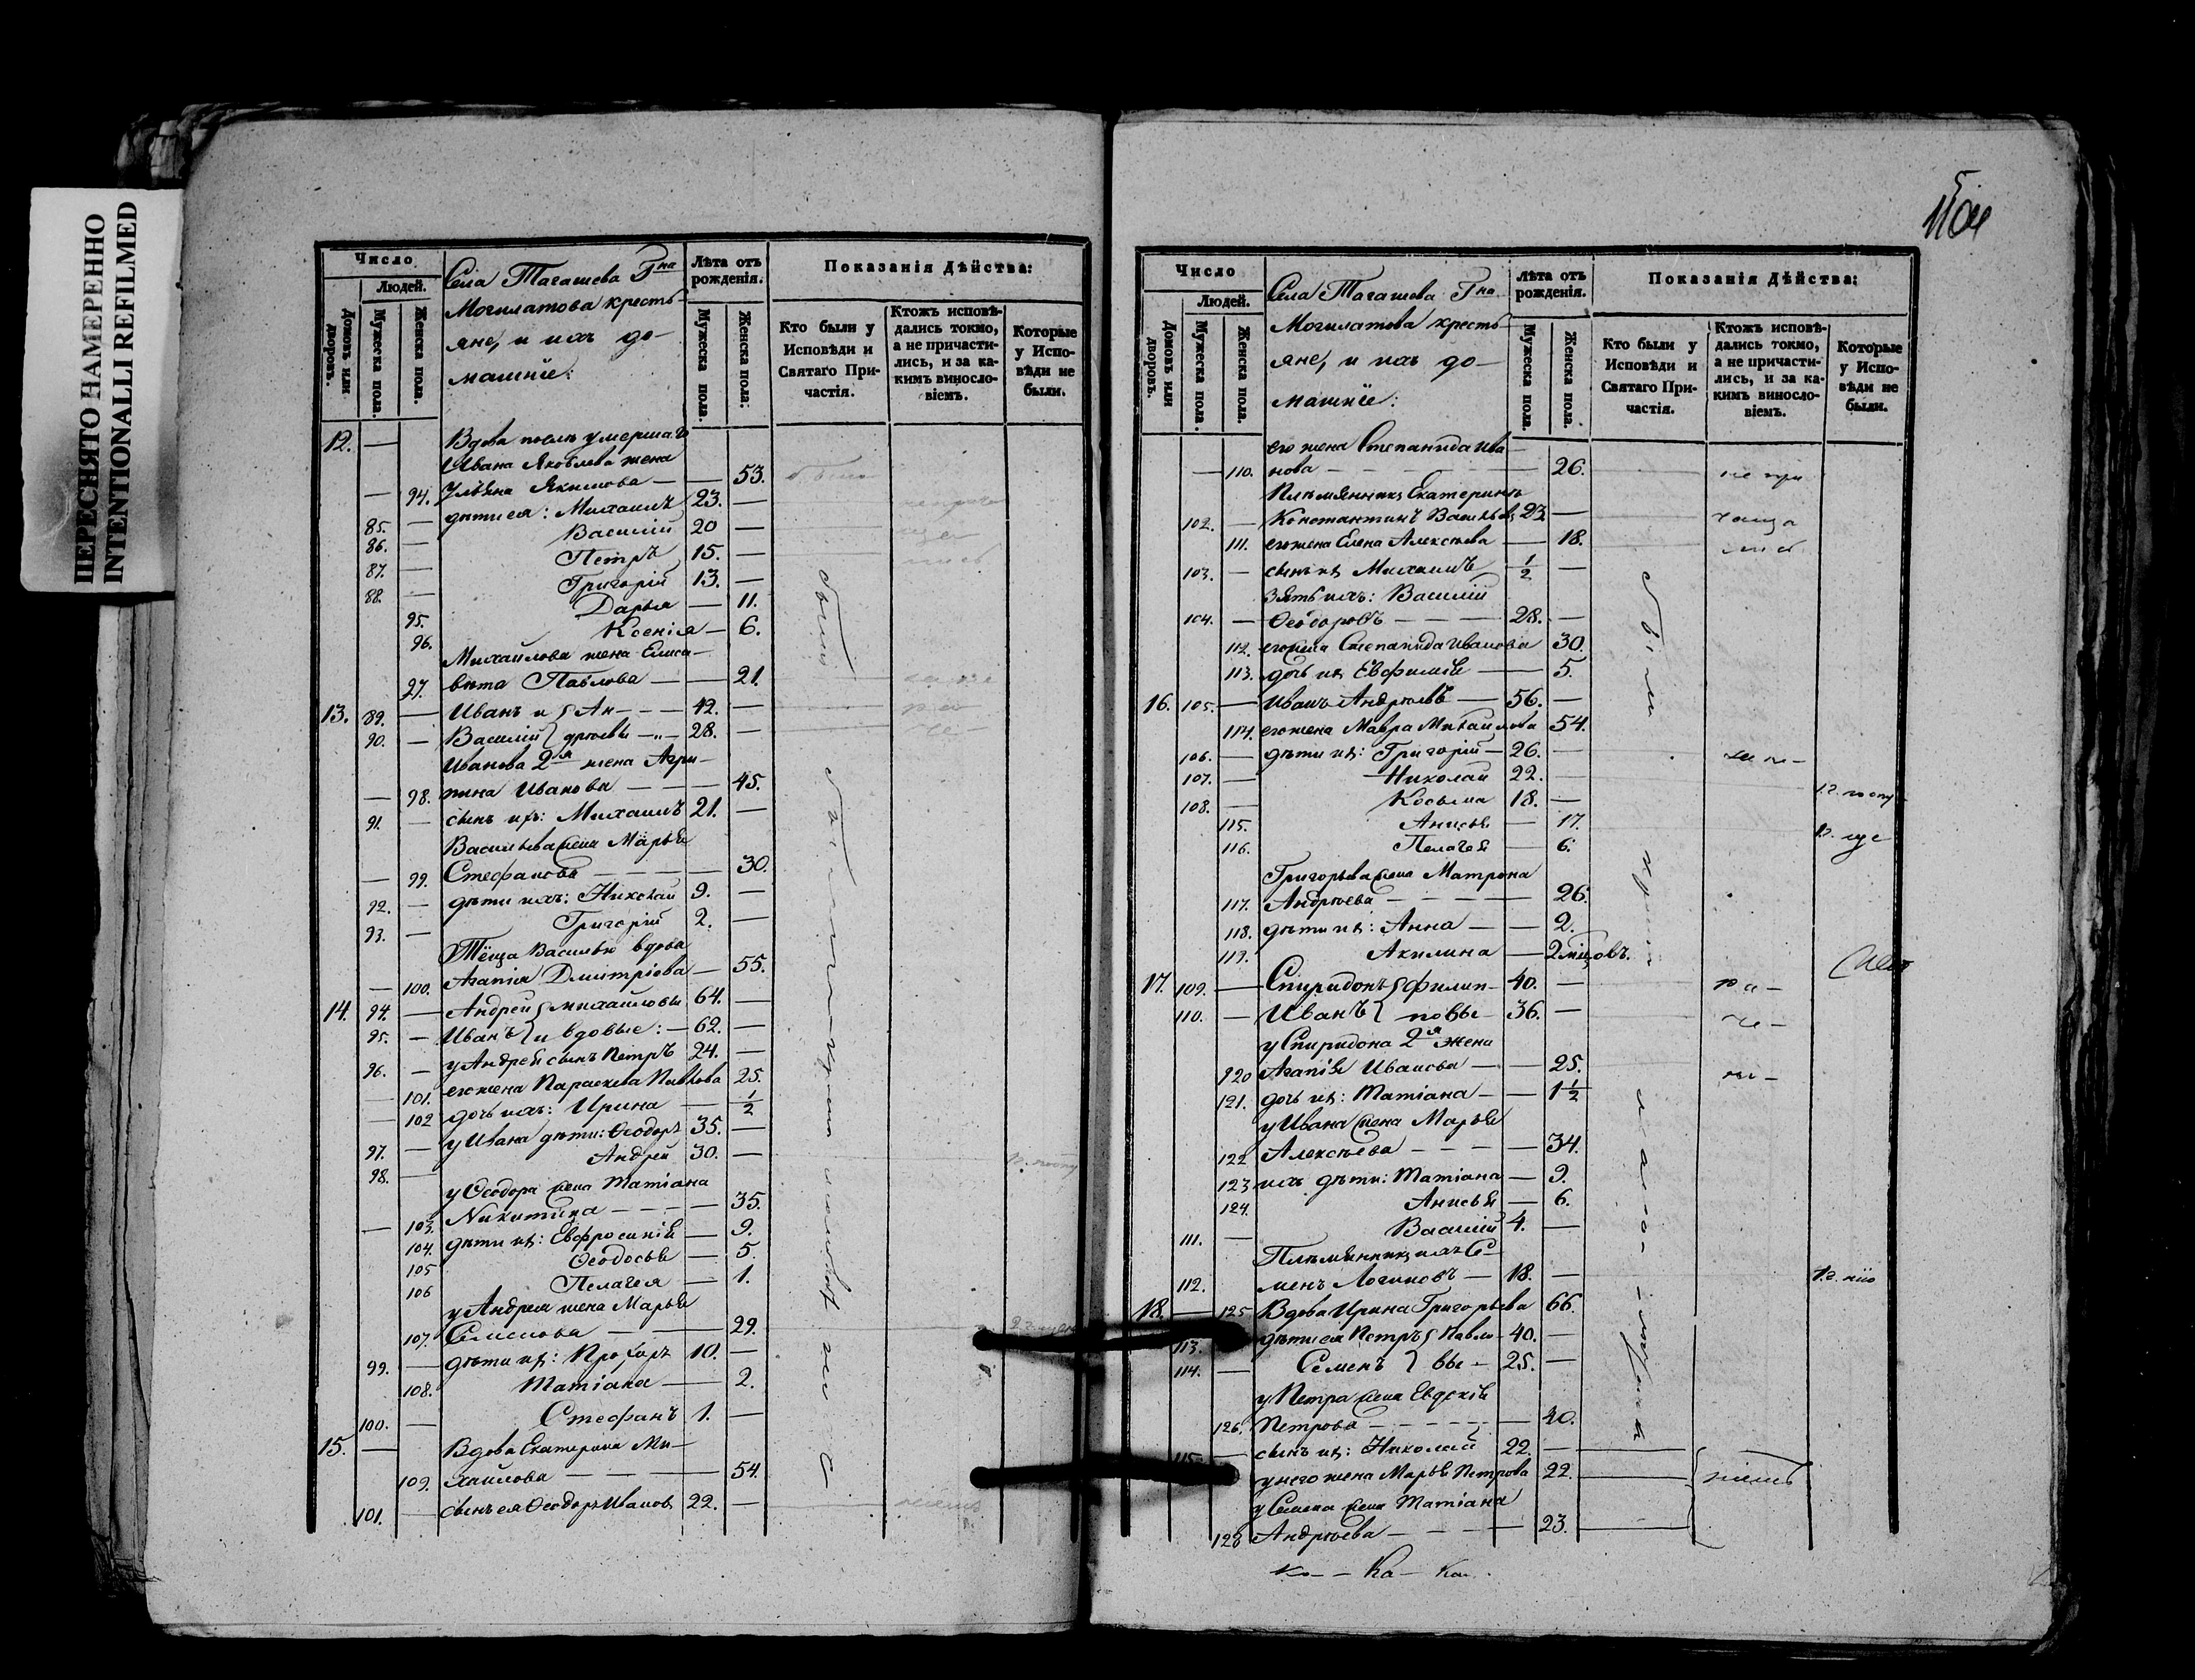 ПЕРЕСНЯТО НАМЕРЕННО
INTENTIONALLI REFILMED
Число
Людей.
Домовъ или дворовъ.
Мужеска пола.
Женска пола.
Села Тагашева Гна
Могилатова кресть-
яне, и ихъ до-
машніе:
Лѣта отъ рожденія.
Мужеска пола.
Женска пола:
Показанія Дѣйства:
Кто были у Исповѣди и Святаго При-частія.
Ктожъ исповѣ-дались токмо, а не причасти-лись, и за ка-кимъ винословіемъ.
Которые у Испо-вѣди не были.
12. — Вдова послѣ умершаго
Ивана Яковлева жена
— 94. Ульяна Якимова — — 53.
85. — дѣти ея: Михаилъ 23. —
86. — Василій 20 —
87. — Петръ 15. —
88. — Григорій 13. —
95. Дарья — 11.
96. Ксенія — 6.
Михайлова жена Елиса-
97. вѣта Павлова — — 21.
13. 89. — Иванъ и Ан- — — 42. —
90. — Василій дрѣевы — 28. —
Иванова 2я жена Агри-
— 98. пина Иванова — — — 45.
91. — сынъ ихъ: Михаилъ 21. —
Васильева жена Марья
— 99. Стефанова — — — 30.
92. — дѣти ихъ: Николай 9. —
93. — Григорій 2. —
Тёща Василью вдова
— 100. Агапія Дмитріева — 55.
14. 94. — Андрей Михайловы 64. —
95. — Иванъ и вдовые: — 62. —
96. — у Андрея сынъ Петръ 24. —
— 101. его жена Параскева Павлова 25.
— 102 дочь ихъ: Ирина — 1/2
97. — у Ивана дѣти: Ѳеодоръ 35. —
98. — Андрей 30. —
у Ѳеодора жена Татіана
— 103. Никитина — — — 35.
104. дѣти ихъ: Евфросинія — 9.
105 Ѳеодосья — 5.
106 Пелагея — 1.
у Андрея жена Марья
107. Семенова — — 29.
99. — дѣти ихъ: Прохоръ 10. —
108. Татіана — 2.
100. — Стефанъ 1. —
15. — Вдова Екатерина Ми-
109. хайлова — — — 54.
101. — сынъ ея Ѳеодоръ Ивановъ 22. —
Число
Людей.
Домовъ или дворовъ.
Мужеска пола.
Женска пола.
Села Тагашева Гна
Могилатова кресть-
яне, и ихъ до-
машніе:
Лѣта отъ рожденія.
Мужеска пола.
Женска пола.
Показанія Дѣйства:
Кто были у Исповѣди и Святаго При-частія.
Ктожъ исповѣ-дались токмо, а не причасти-лись, и за ка-кимъ винословіемъ.
Которые у Испо-вѣди не были.
его жена Степанида Ива-
— 110. нова — — — 26.
Племянникъ Екатерины
102. — Константинъ Васильевъ 23 —
111. его жена Елена Алексѣева — 18.
103. — сынъ ихъ Михаилъ 1/2 —
Зять ихъ: Василій
104. — Ѳеодоровъ — — 28. —
112. его жена Степанида Иванова 30.
113. дочь ихъ Евфимія — 5.
16. 105. — Иванъ Андрѣевъ — 56. —
114. его жена Мавра Михайлова 54.
106. — дѣти ихъ: Григорій — 26. —
107. — Николай 22. —
108. — Косьма 18. —
115. Анисья — 17.
116. Пелагея — 6.
Григорьева жена Матрона
117. Андрѣева — — — 26.
118. дѣти ихъ: Анна — — 2.
119. Акилина — 2 мѣсяцовъ.
17. 109. — Спиридонъ Филип- 40. —
110. — Иванъ повы — 36. —
у Спиридона 2я жена
120 Агапія Иванова — — 25.
121. дочь ихъ: Татіана — — 1 1/2
у Ивана жена Марья
122 Алексѣева — — — 34.
123 ихъ дѣти: Татіана — 9.
124. Анисья — 6.
111. — Василій 4. —
Племянникъ ихъ Се-
112. менъ Логиновъ — 18. —
18. — 125 Вдова Ирина Григорьева 66.
113. дѣти ея Петръ Павло- 40. —
114. — Семенъ вы — 25. —
у Петра жена Евдокія
126. Петрова — — — 40.
115. — сынъ ихъ: Николай 22. —
у него жена Марья Петрова 22.
у Семена жена Татіана
128 Андрѣева — — — 23.